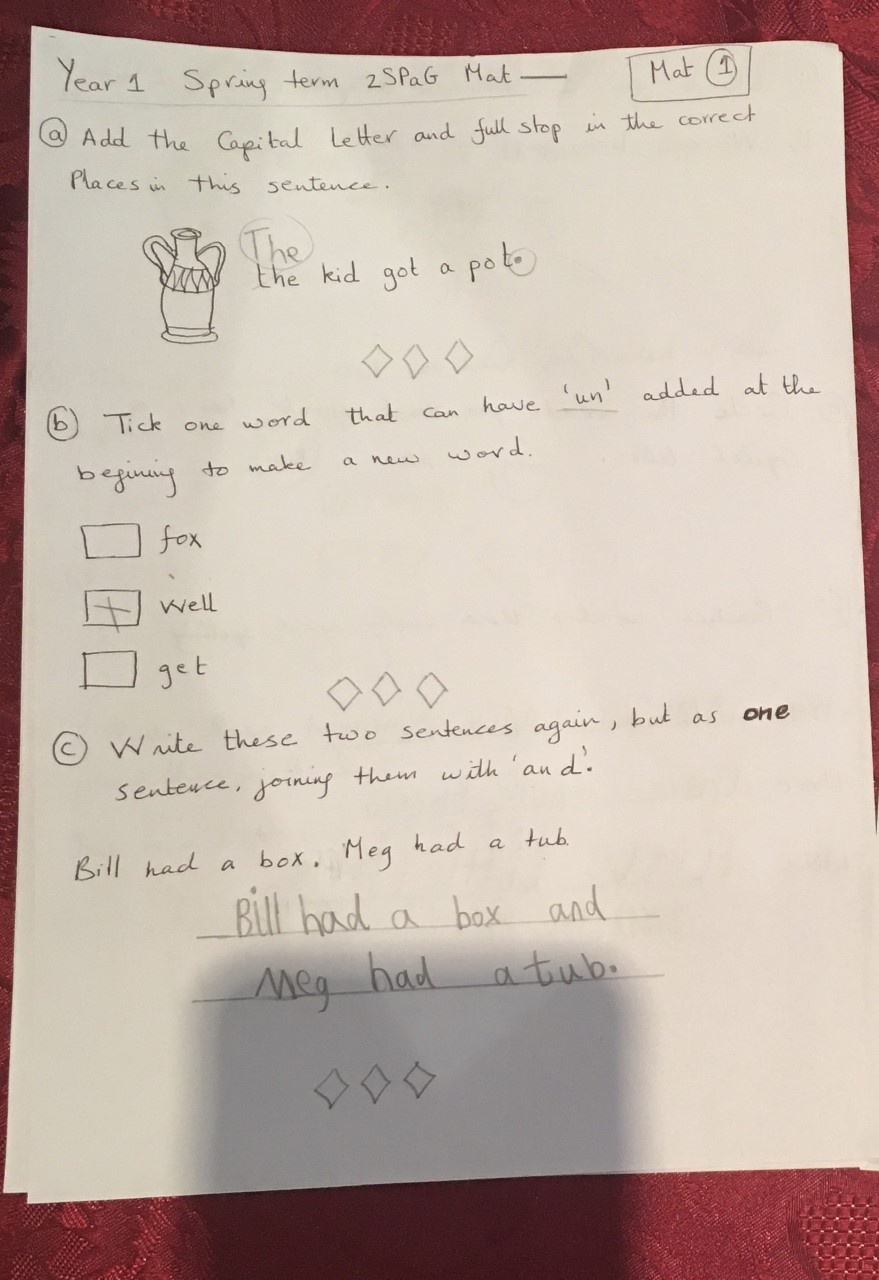 Year 1 Spring term 2 SPaG Mat — Mat 1
a Add the Capital Letter and full stop in the correct
Places in this sentence.
The
the kid got a pot.
b Tick one word that can have 'un' added at the
begining to make a new word.
fox
well
get
c Write these two sentences again, but as one
sentence, joining them with 'and'.
Bill had a box. Meg had a tub.
Bill had a box and
Meg had a tub.